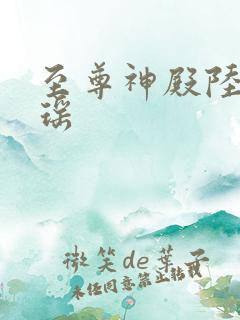 至尊神殿陸
瑤
微笑de葉子
未经同意禁止转载